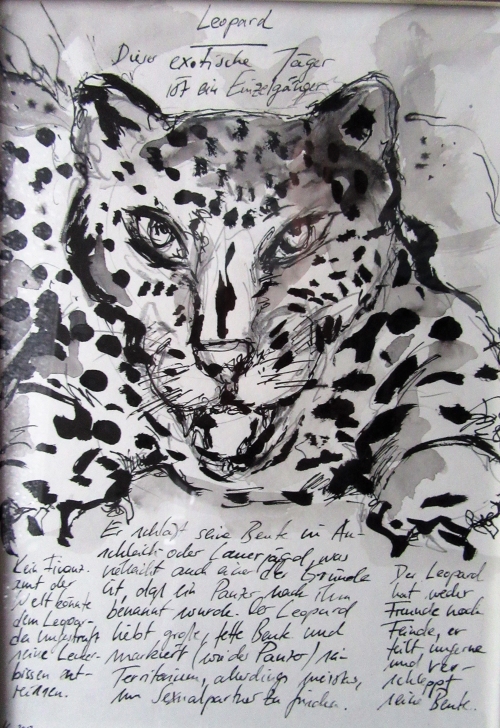 Leopard
Dieser exotische Jäger
ist ein Einzelgänger
Er schlägt seine Beute im An-
schleich- oder Lauerjagd, was
vielleicht auch einer der Gründe
ist, daß ein Panzer nach ihm
benannt wurde. Der Leopard
liebt große, fette Beute und
markiert (wie der Panzer) sein
Territorium, allerdings meistens,
um Sexualpartner zu finden.
Kein Finanz-
amt der
Welt könnte
dem Leopar-
den
seine Lecker-
bissen ent-
reißen.
Der Leopard
hat weder
Freunde noch
Feinde, er
teilt ungerne
und ver-
schleppt
seine Beute.